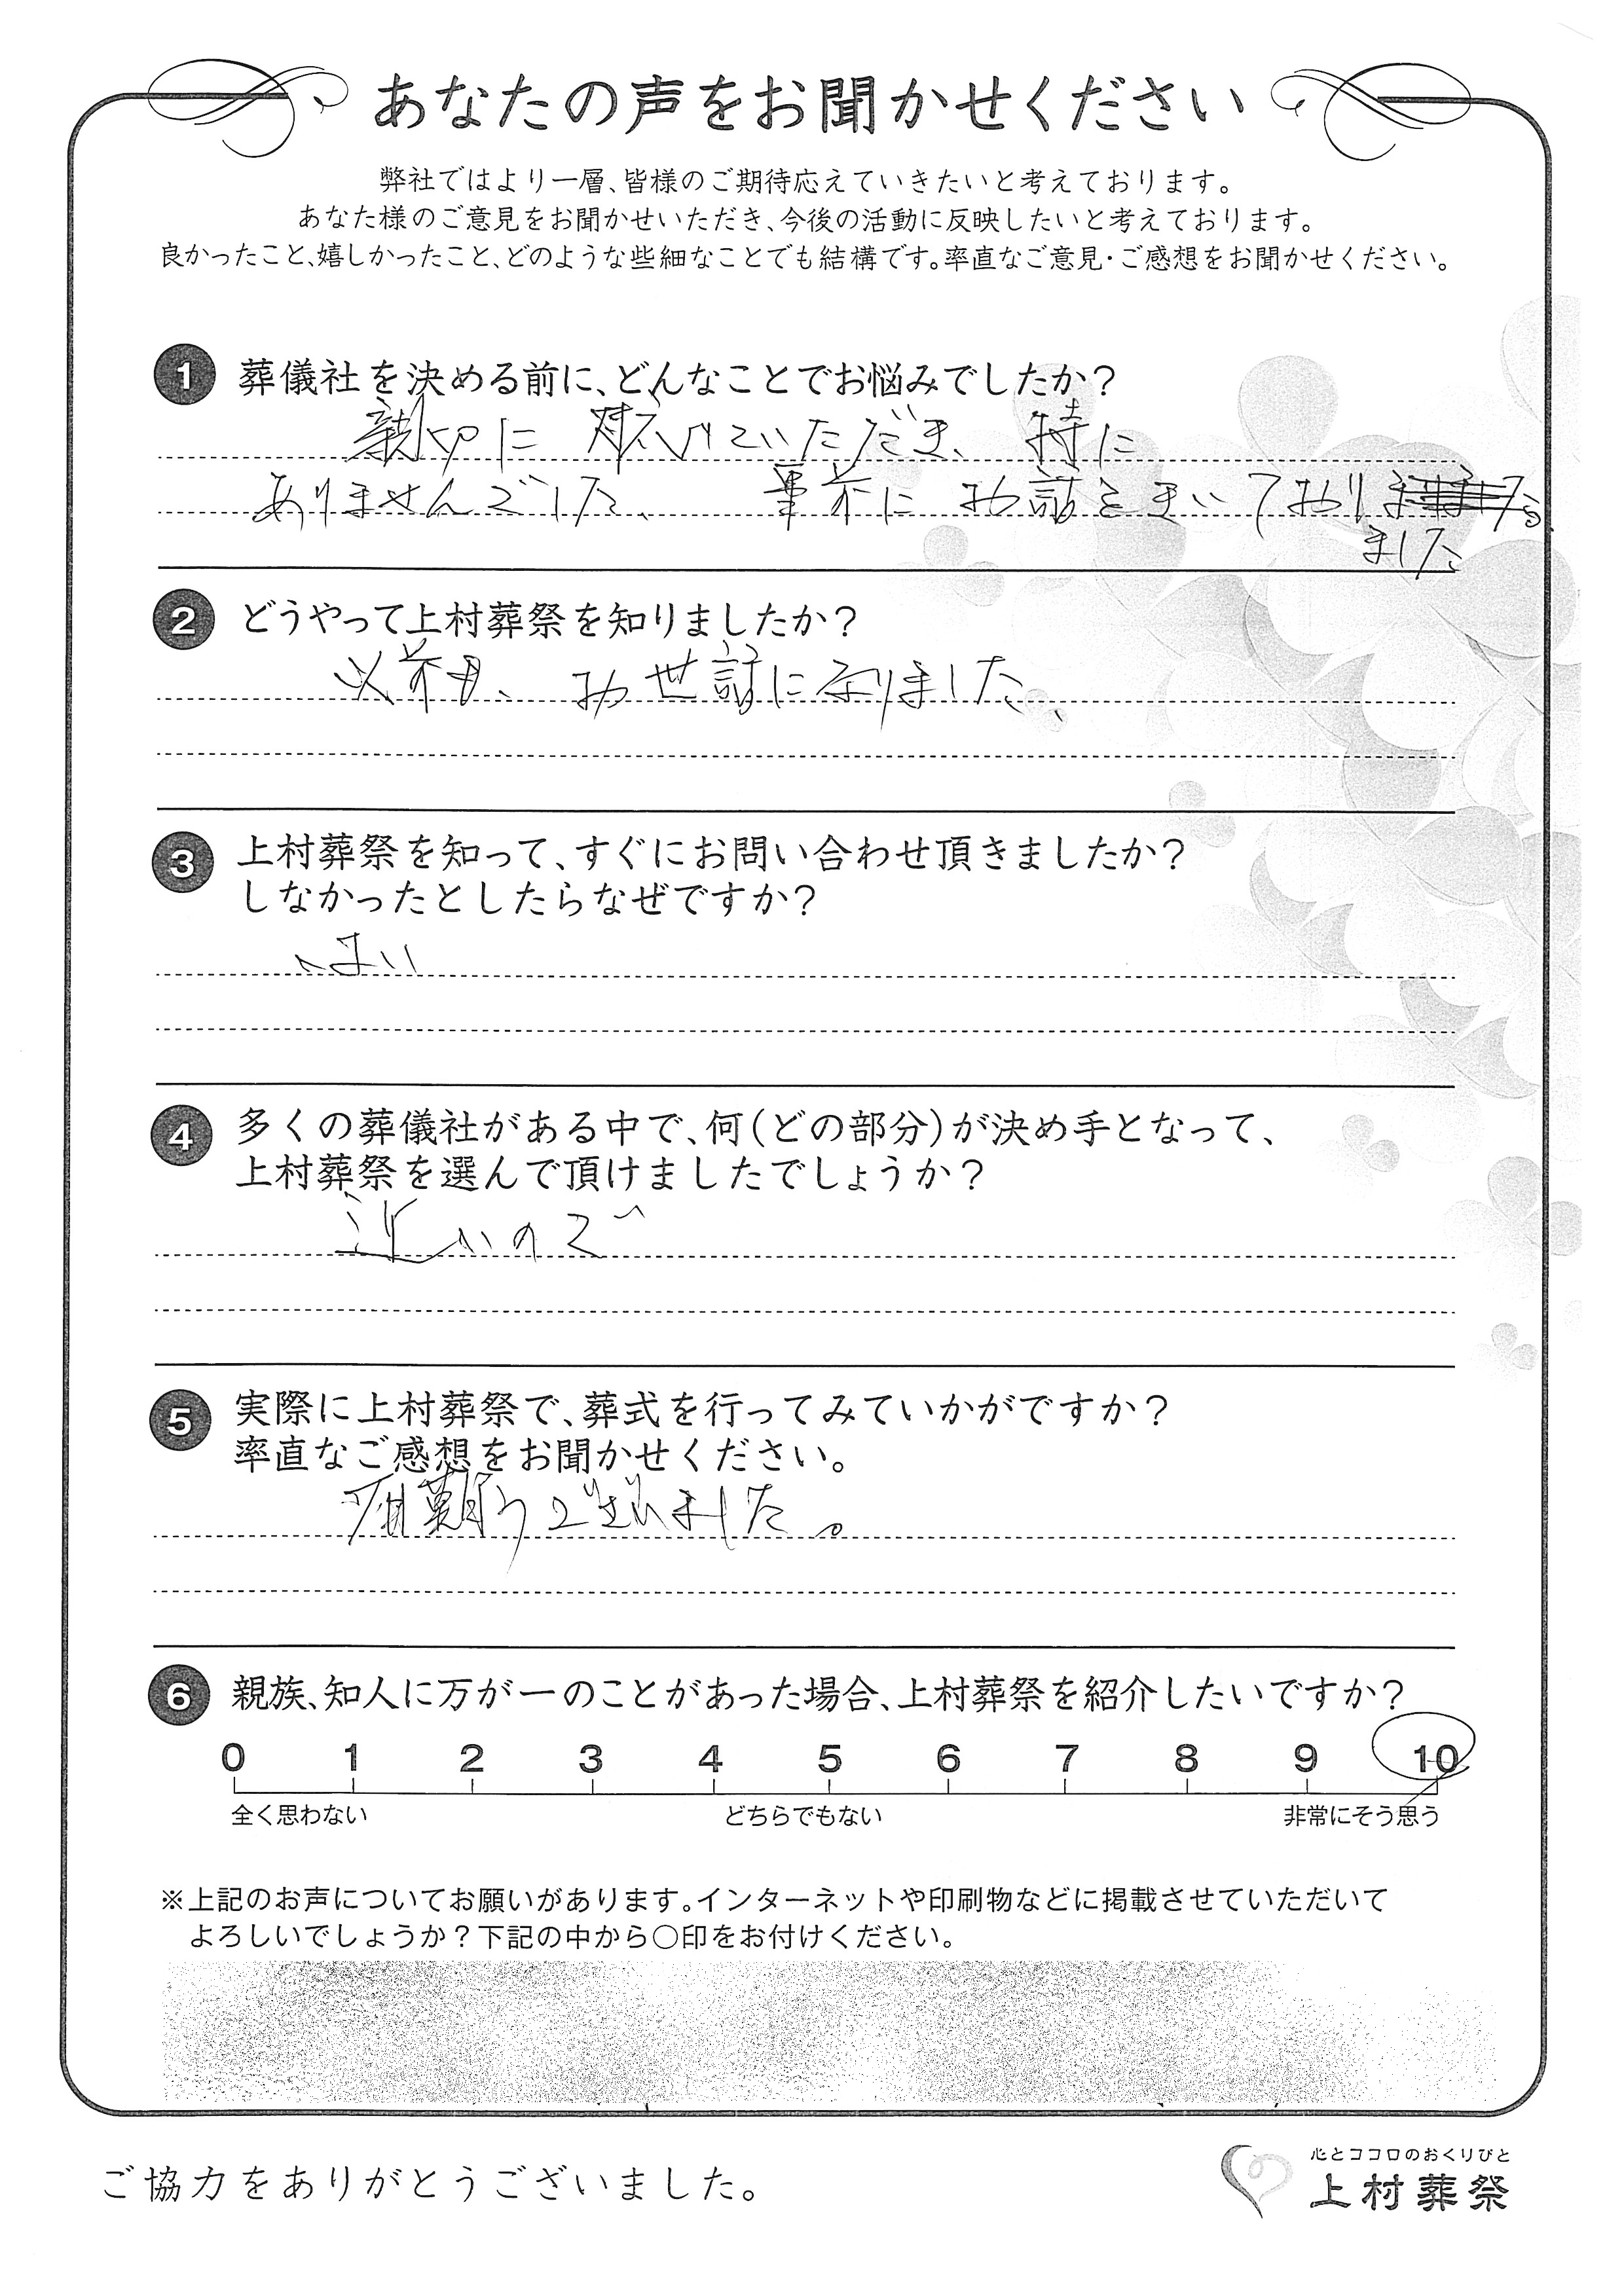 あなたの声をお聞かせください
弊社ではより一層、皆様のご期待応えていきたいと考えております。
あなた様のご意見をお聞かせいただき、今後の活動に反映したいと考えております。
良かったこと、嬉しかったこと、どのような些細なことでも結構です。率直なご意見・ご感想をお聞かせください。
1 葬儀社を決める前に、どんなことでお悩みでしたか？
親切に対応していただき、特に
ありませんでした、事前にお話をきいており
ました
2 どうやって上村葬祭を知りましたか？
以前、お世話になりました、
3 上村葬祭を知って、すぐにお問い合わせ頂きましたか？
しなかったとしたらなぜですか？
はい
4 多くの葬儀社がある中で、何（どの部分）が決め手となって、
上村葬祭を選んで頂けましたでしょうか？
近いので
5 実際に上村葬祭で、葬式を行ってみていかがですか？
率直なご感想をお聞かせください。
ございました。
6 親族、知人に万が一のことがあった場合、上村葬祭を紹介したいですか？
0 1 2 3 4 5 6 7 8 9 10
全く思わない どちらでもない 非常にそう思う
※上記のお声についてお願いがあります。インターネットや印刷物などに掲載させていただいて
よろしいでしょうか？下記の中から〇印をお付けください。
ご協力をありがとうございました。
心とココロのおくりびと
上村葬祭